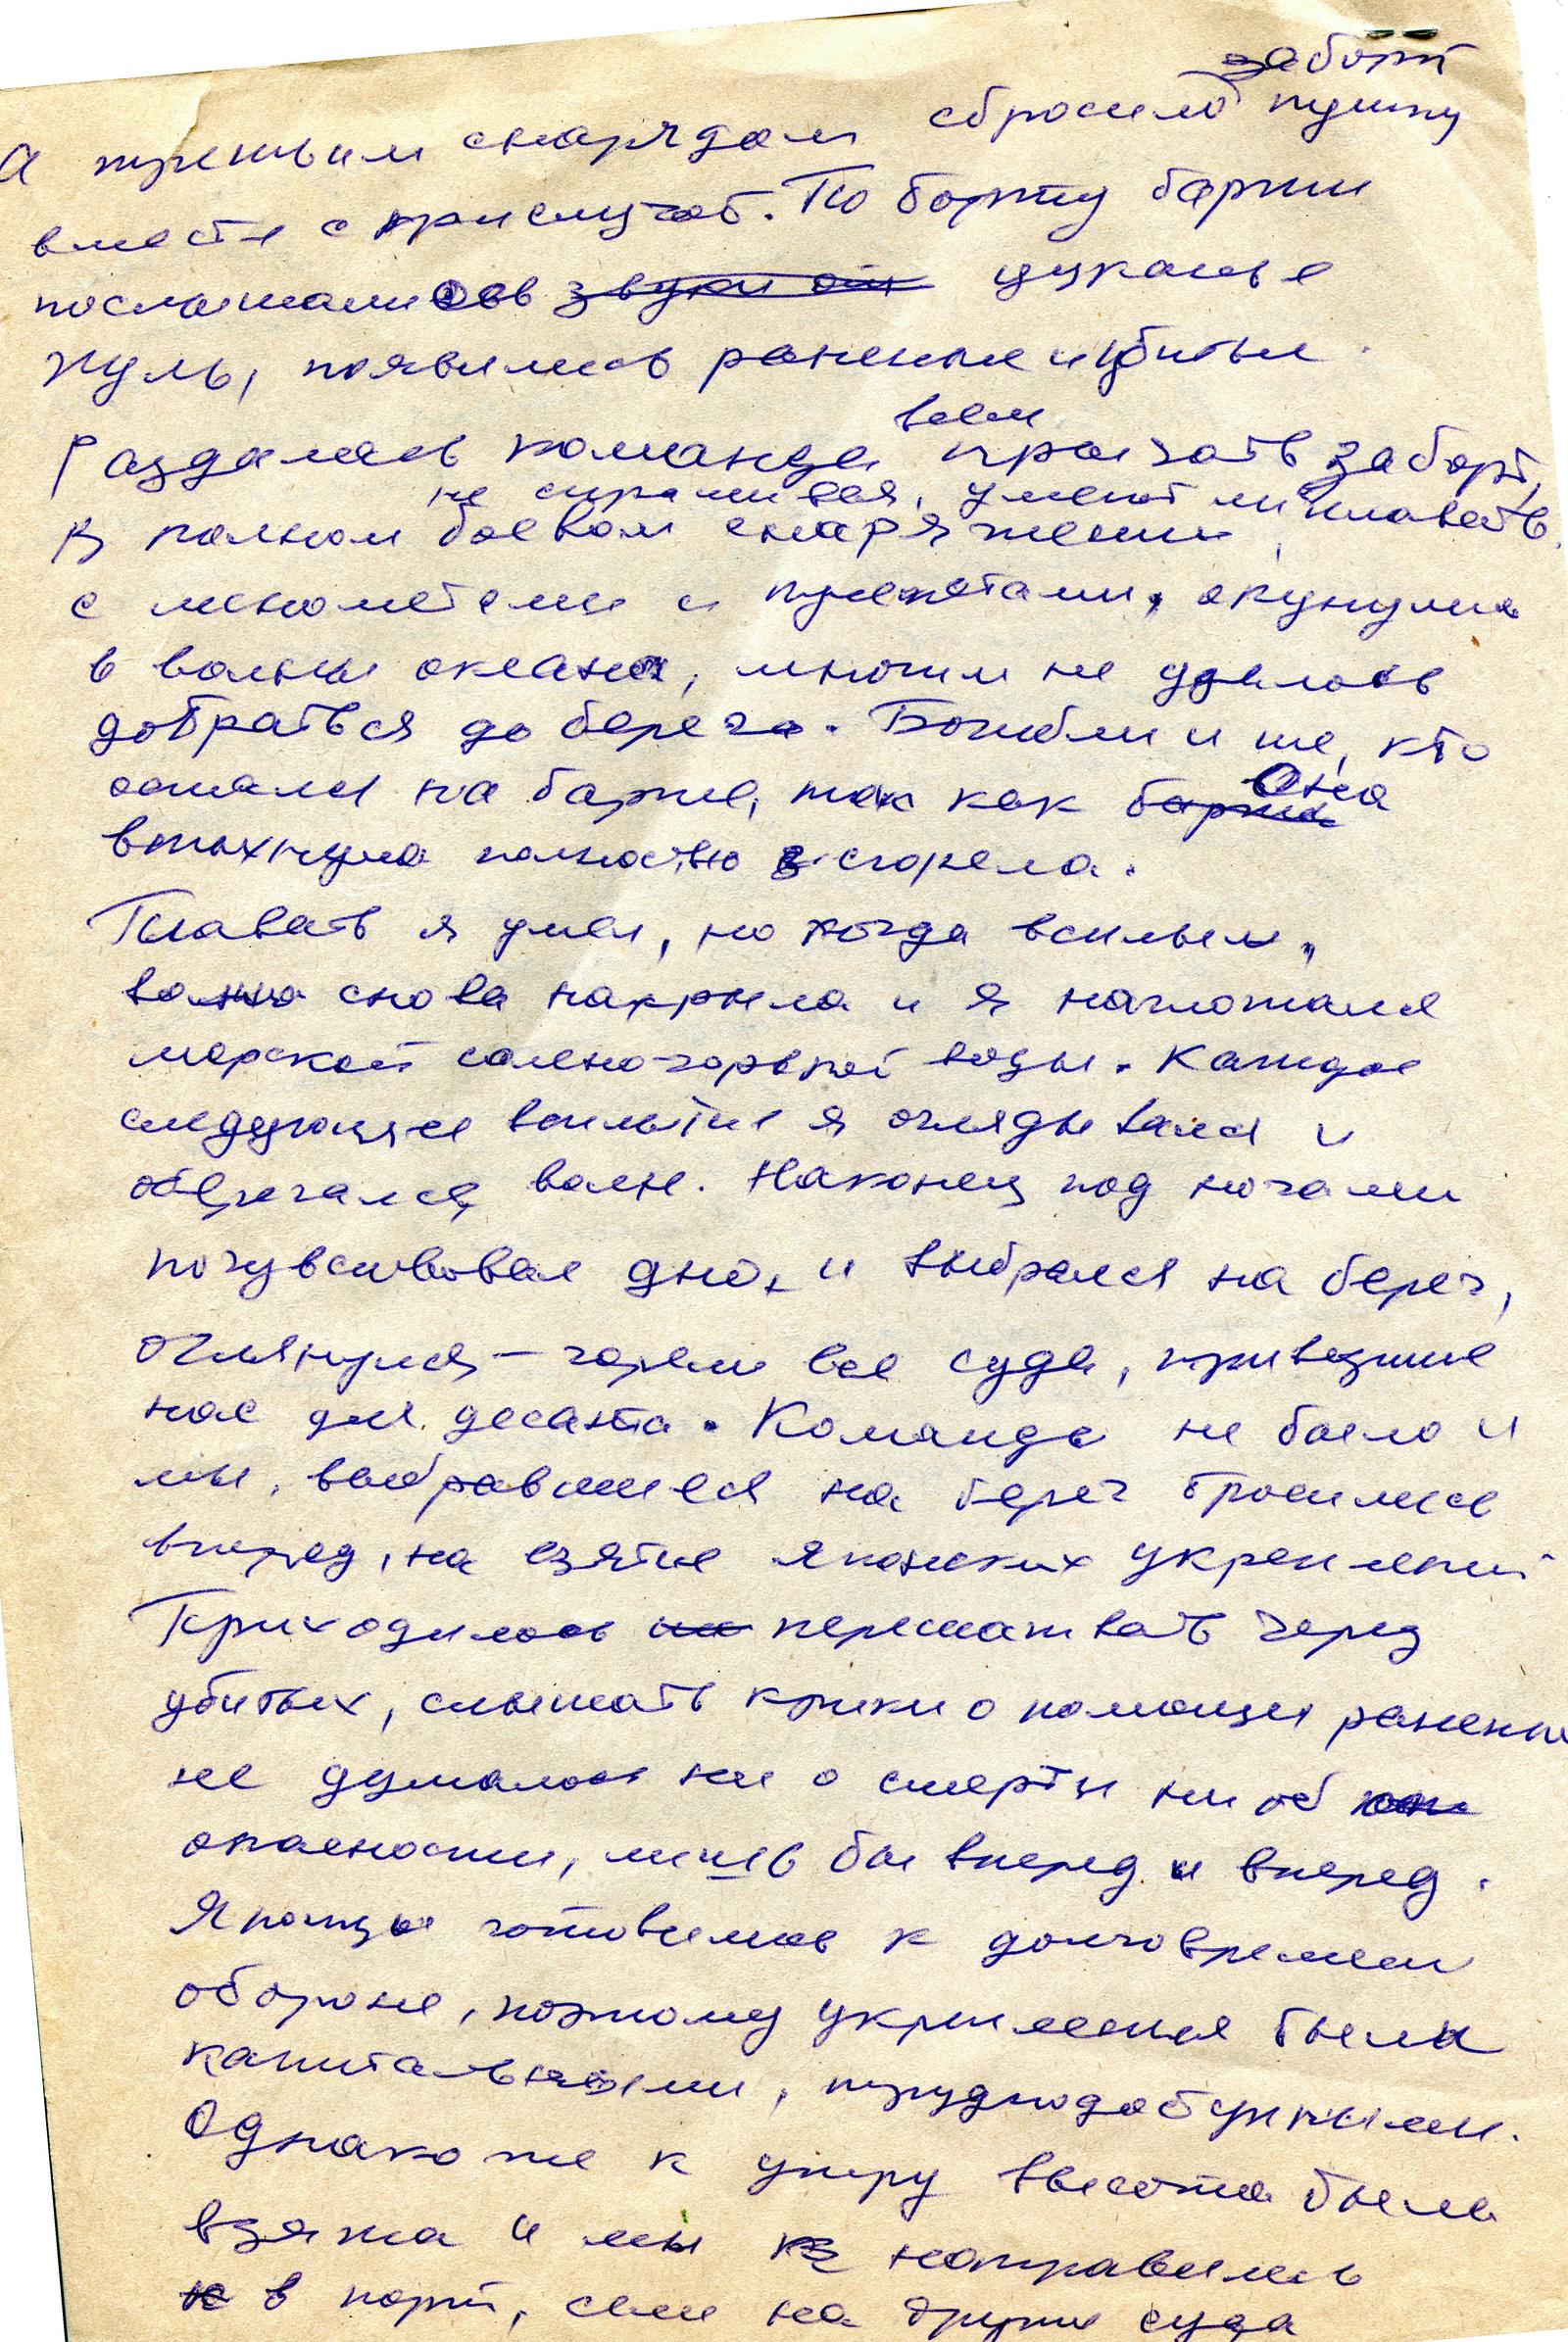 за борт
а третьим снарядом сбросило пушку
вместе с прислугой. По борту баржи
послышалось звуки от цуканье
пуль, появились раненые и убитые.
всем
Раздалась команда прыгать за борт,
не спрашивая, умеют ли плавать.
В полном боевом снаряжении,
с минометами и пулеметами, окунулись
в волны океана, многим не удалось
добраться до берега. Погибли и те, кто
остался на барже, так как баржа
она
вспыхнула полностью и сгорела.
Плавать я умел, но когда всплыл,
волна снова накрыла и я наглотался
морской солено-горькой воды. Каждое
следующее всплытие я оглядывался и
оберегался волн. Наконец под ногами
почувствовал дно, и выбрался на берег,
оглянулся – горели все суда, привезшие
нас для десанта. Команды не было и
мы, выбравшиеся на берег бросились
вперед, на взятие японских укреплений
Приходилось перешагивать через
убитых, слышать крики о помощи раненых
не думалось ни о смерти ни об
опасности, лишь бы вперед и вперед.
Японцы готовились к долговремен
обороне, поэтому укрепления были
капитальными, труднодоступными.
Однако же к утру высота была
взята и мы направились
в порт, сели на другие суда